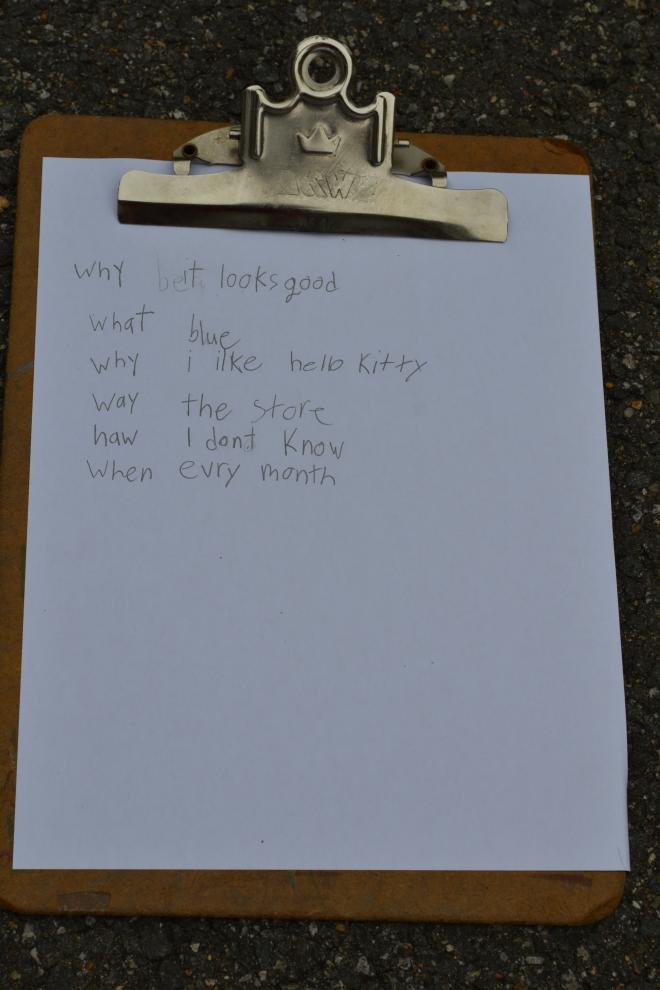 why it looks good
what blue
why i ilke hello kitty
way the store
haw I dont know
when evry month